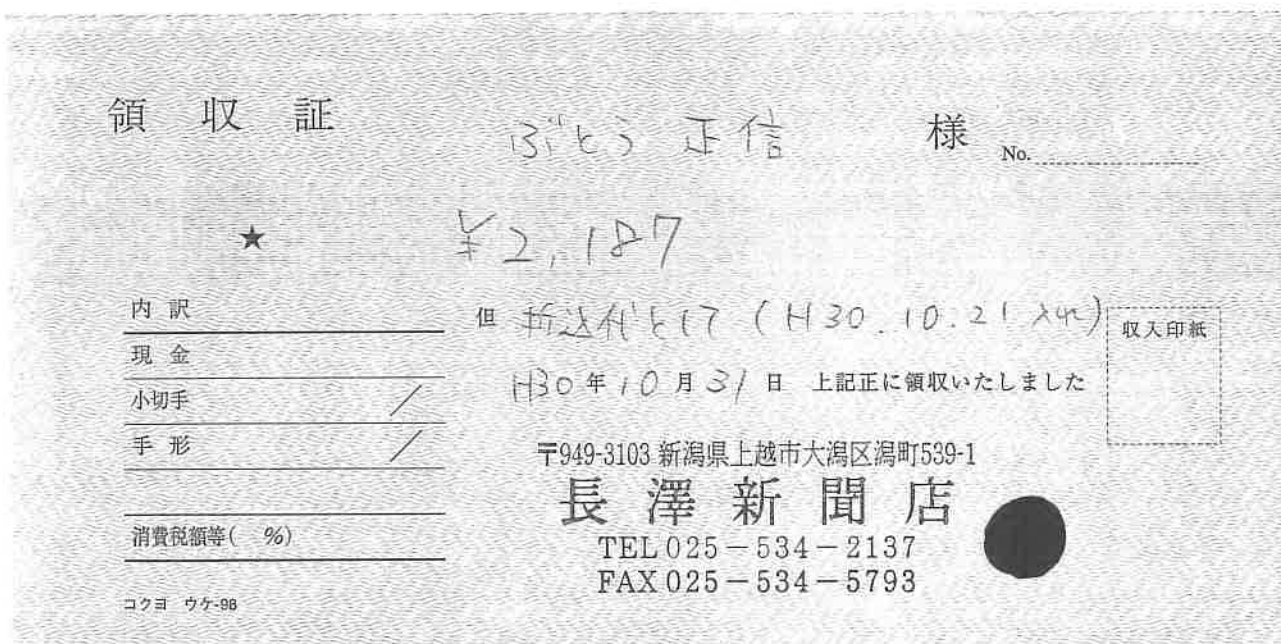 領収証 ぶとう 正信 様 No.
★ ¥2,187
内訳
現金
小切手 /
手形 /
消費税額等( %)
コクヨ ウケ-98
但 折込代として (H30.10.21 入れ)
H30年10月31日 上記正に領収いたしました
収入印紙
〒949-3103 新潟県上越市大潟区潟町539-1
長澤新聞店
TEL 025-534-2137
FAX 025-534-5793